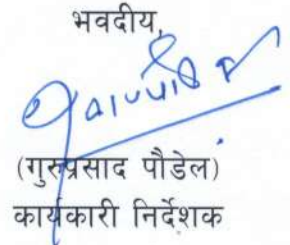 भवदीय,
(गुरुप्रसाद पौडेल)
कार्यकारी निर्देशक